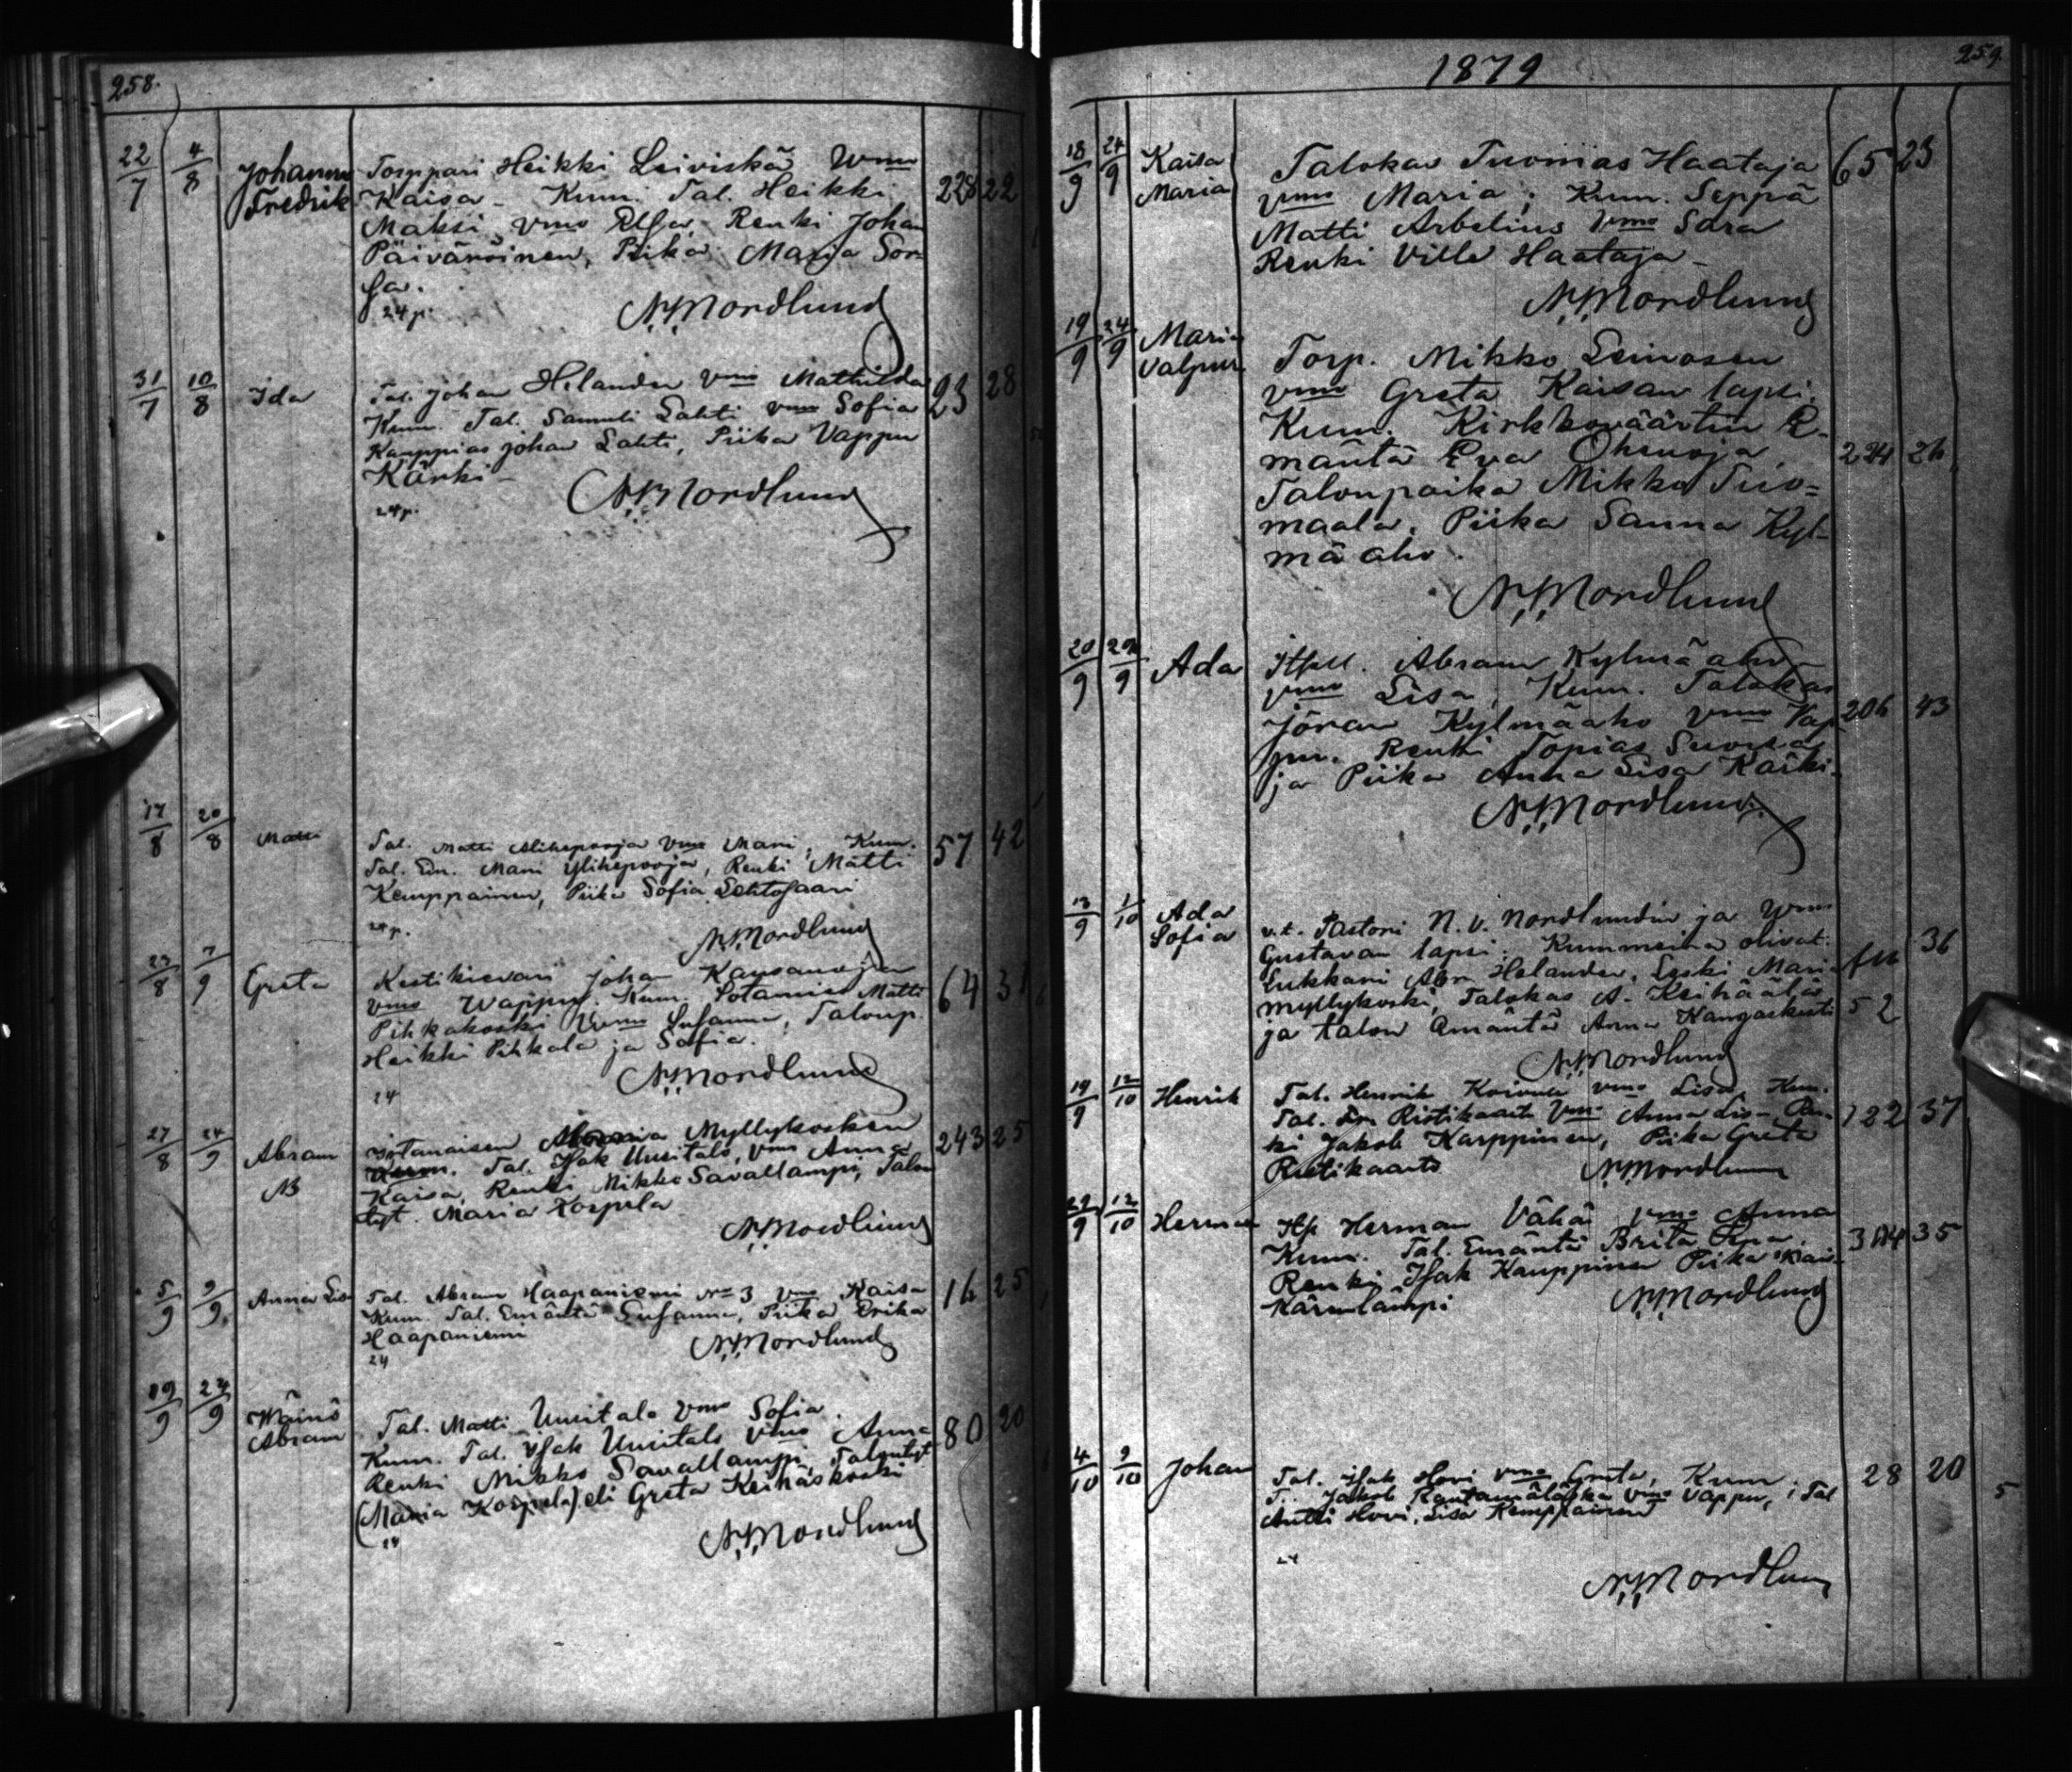 258.
22/7 4/8 Johannes Torppari Heikki Leiviskä Vmo
Fredrik Kaisa - Kum. Tal. Heikki 228 22
Maksi vmo Elsa, Renki Johan
Päivärinnen, Piika Marja Sor-
sa.
24 p. N.V. Nordlund
31/7 10/8 Ida Tal. Johan Helander vmo Mathilda 93 28
Kum. Tal. Samuli Lahti vmo Sofia
Kauppias Johan Lahti, Piika Vappu
Kärki -
24 p. N.V. Nordlund
17/8 20/8 Matti Tal. Matti Alihepooja vmo Mari, Kum. 57 42
Tal. Em. Mari Ylihepooja, Renki Matti
Kemppainen, Piika Sofia Lehtosaari
24 p. N.V. Nordlund
23/8 7/9 Greta Kestikievari Johan Kausanoja 64 31
vmo Wappu. Kum. Sotamies Matti
Pihkakoski Vmo Susanna, Taloup.
Heikki Pihkala ja Sofia.
24 N.V. Nordlund
27/8 24/9 Abram Itänaisen Maria Myllykosken 243 25
Kum. Tal. Isak Uusitalo, vmo Anna
NB Kaisa, Renki Mikko Savallampi, Talon
tyt. Maria Korpela
N.V. Nordlund
5/9 9/9 Anna Lis Tal. Abram Haapaniemi No 3 vmo Kaisa 16 25
Kum. Tal. Emäntä Susanna, Piika Erika
Haapaniemi
24 N.V. Nordlund
19/9 24/9 Wäinö Tal. Matti Uusitalo vmo Sofia.
Abram Kum. Tal. Isak Uusitalo vmo Anna 80 20
Renki Mikko Savallampi, Talontyt
(Maria Korpela) eli Greta Keihäskoski
24 N.V. Nordlund
1879 259.
18/9 24/9 Kaisa Talokas Tuomas Haataja 65 23
Maria vmo Maria; Kum. Seppä
Matti Arbelius Vmo Sara
Renki Ville Haataja -
N.V. Nordlund
19/9 24/9 Maria Torp. Mikko Leinosen
Valpur. vmo Greta Kaisan lapsi.
Kum. Kirkkoväärtin E-
mäntä Eva Ohenoja 224 26
Talonpoika Mikko Tuo=
maala, Piika Sanna Kyl-
mäaho.
N.V. Nordlund
20/9 29/9 Ada Itsell. Abram Kylmäaho
vmo Lisa, Kum. Talokas
Jöran Kylmäaho vmo Vap 206 43
pu. Renki Topias Suorsa
ja Piika Anna Lisa Kärki-
N.V. Nordlund
13/9 1/10 Ada v.t. Pastori N.V. Nordlundin ja Vmo
Sofia Gustavan lapsi. Kummeina olivat: 36
Lukkari Abr Helander, Leski Maria
Myllykoski, Talokas A. Keihäälä 52
ja talon emäntä Anna Kangaskesti
N.V. Nordlund
19/9 12/10 Henrik Tal. Henrik Koivula vmo Lisa, Kum. 122 37
Tal. Er. Ristikaarto Vmo Anna Lis- Ren-
ki Jakob Karppinen, Piika Greta
Ristikaarto N.V. Nordlund
29/9 12/10 Herman Itp Herman Vähä vmo Anna
Kum. Tal. Emäntä Brita 304 35
Renki Isak Kauppinen Piika Kai-
Kärenlampi N.V. Nordlund
4/10 9/10 Johan Tal. Isak Hovi vmo Greta, Kum: 28 20
T. Jakob Rautamälaska vmo Vappu, i Tal
Antti Hovi, Lisa Kemppainen
24
N.V. Nordlund